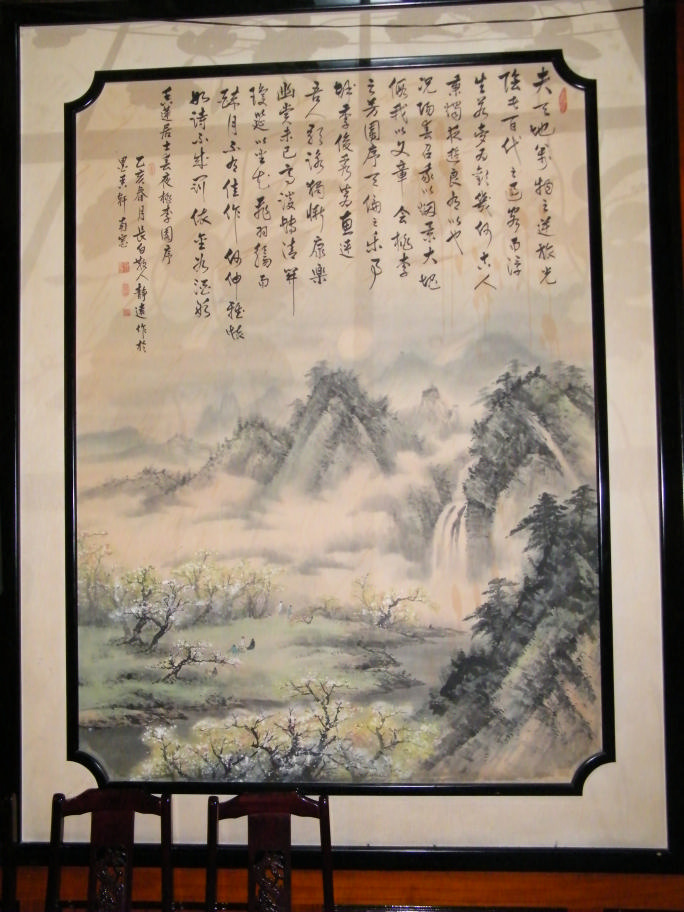 夫天地萬物之逆旅光
陰者百代之過客而浮
生若夢為歡幾何古人
秉燭夜遊良有以也
況陽春召我以烟景大塊
假我以文章會桃李
之芳園序天倫之樂事
群季俊秀皆為惠連
吾人詠歌獨慚康樂
幽賞未已高談轉清開
瓊筵以坐花飛羽觴而
醉月不有佳作何伸雅懷
如詩不成罰依金谷酒數
青蓮居士春夜桃李園序
乙亥春月長白散人靜遠作於
墨景軒南窗